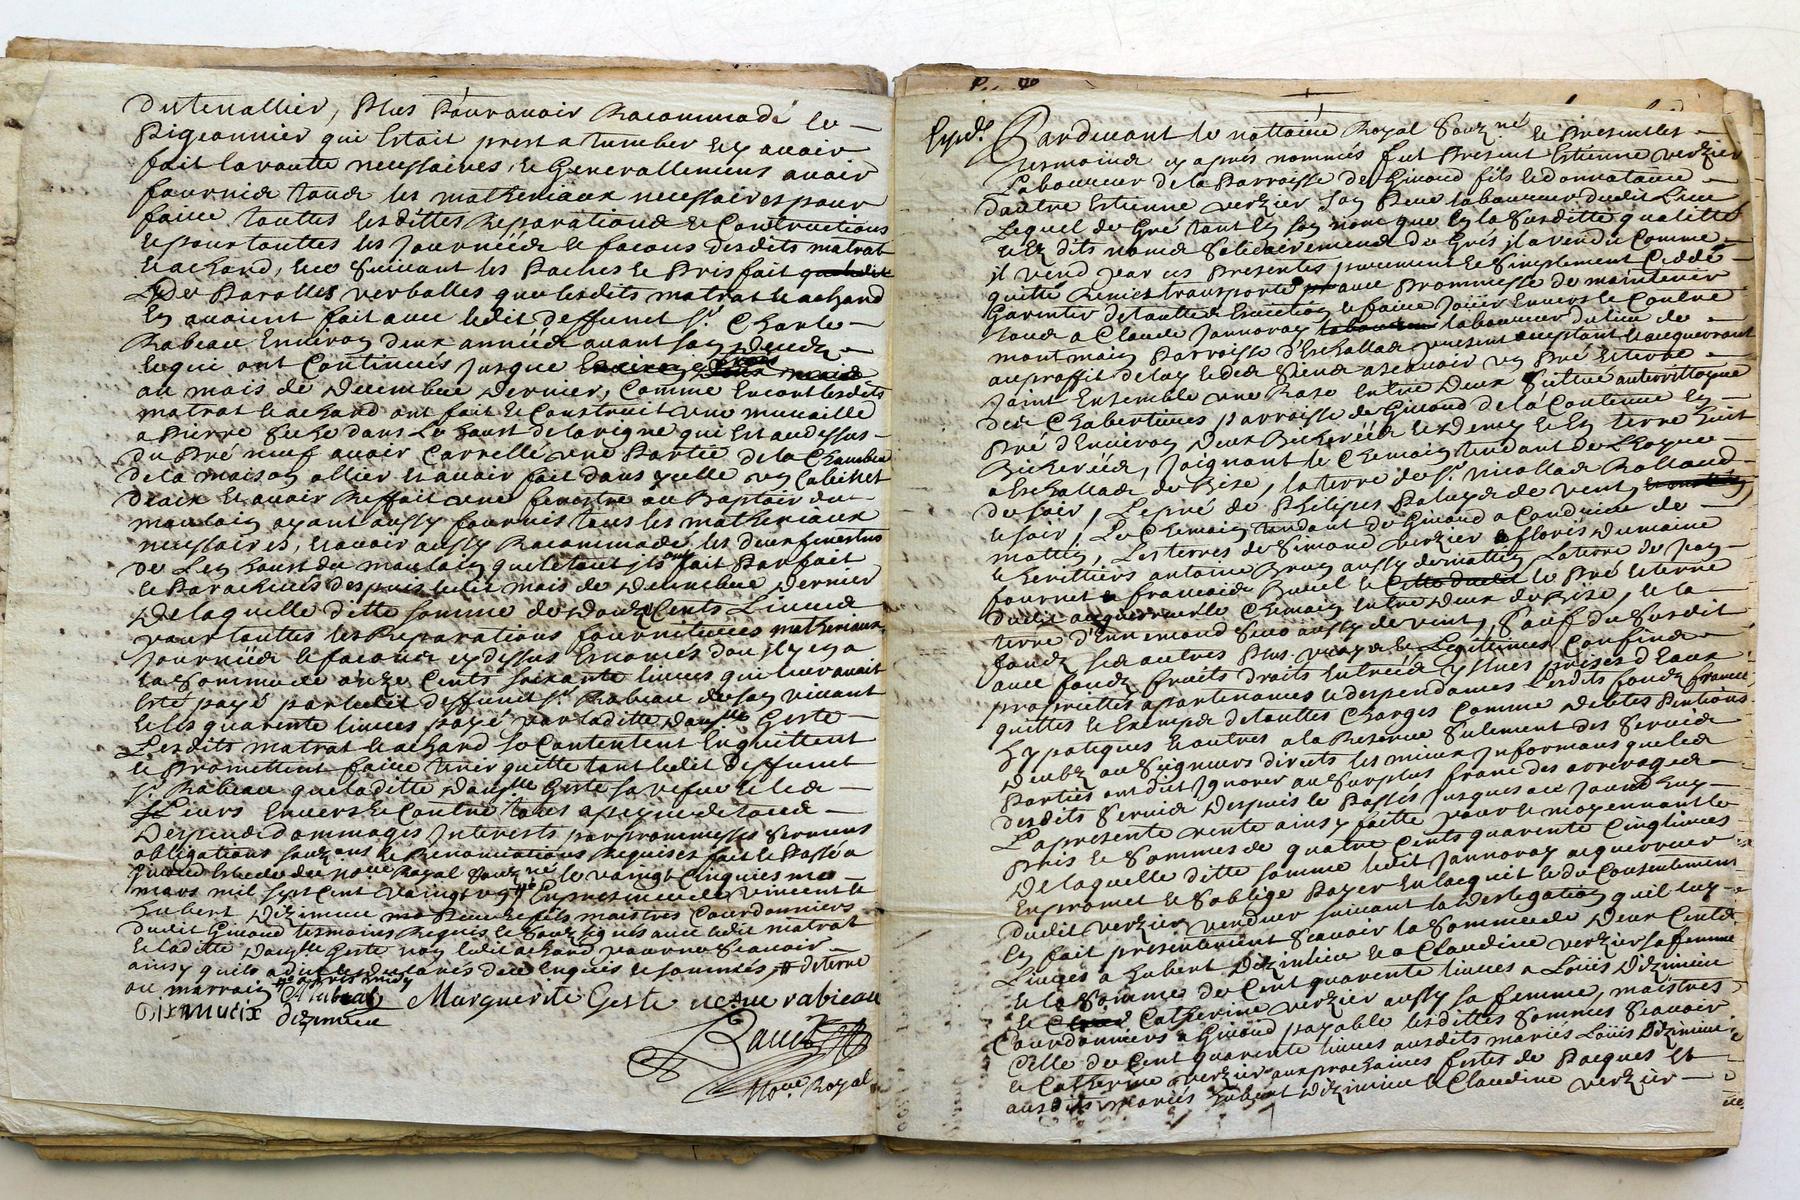 du tenallier, Plus Pour avoir Racommodé le
Pigeonnier qui Estait prest a tumber Et y avoir
fait la voutte necessaires, et Generallement avoir
fournis tous les matheriaux necessaires pour
faire touttes lesdittes Reparations et Constructions
et pour touttes les Journées et facons desdits matrat
et achard, suivant les Pactes et Prisfait
de Parolles verballes que lesdits matrat et achard
En avoient fait avec ledit deffunct Sr. Charle
Rabeau Environ deux années avant son deceds
et qui ont Continués Jusque
au mois de Decembre Dernier, Comme Encor lesdits
matrat et achard ont fait et Construit une muraille
a Pierre Seche dans Le haut de la vigne qui Est au dessus
du Pré neuf avoir Carrellé une Partie de la Chambre
de la maison allier et avoir fait dans ycelle un Cabinet
d'aix Et avoir Reffait une fenestre au
moulain ayant aussy fournis tous les matheriaux
necessaires, et avoir aussy Racommodé les deux fenestres
de Len haut du moulain que le tout ils ont fait Parfait
et Parachevés despuis ledit mois de Decembre Dernier
De laquelle ditte somme de Douze Cents Livres
pour touttes les Reparations fournitures matheriaux
Journées et facons cy dessus Enoncés dont il y en a
La Somme de onze Cents soixante livres qui leur avait
Esté payé par ledit deffunct Sr. Rabeau de son vivant
et les quarente livres payé par laditte Damlle Geste
Lesdits matrat et achard se Contentent En quittent
et Promettent faire tenir quitte tant ledit Deffunct
Sr. Rabeau que laditte Damlle Geste sa vefve et les
Siens Envers et Contre tous a peyne de tous
Despends dommages Interests par promesses serments
obligations et Renonciations Requises fait et Passé a
Givord Estude du Nore Royal Souzné le vaingt Cinquiesme
mars mil sept Cent vaingt En presence de Vincent et
hubert Dizimieu Pere et fils maistres Courdonniers
dudit Givord tesmoins Requis et Souzsignés avec ledit matrat
et laditte Damlle Geste non ledit achard pour ne Scavoir
ainsy quils a dit de ce Enquis et sommés
Marguerite Geste veave rabieau
dizimieu
Nore. Royal
Expdé. Pardevant le nottaire Royal Souzné. et Presents les
tesmoins cy aprés nommés fut Present Estienne verzier
Laboureur de la Parroisse de Givord fils et donnataire
d'autre Estienne verzier son Pere laboureur dudit Lieu
Lequel de Gré tant En son nom que En la Susditte quallitté
et Es dits noms Solidairement de Grés il a vendu Comme
il vend par ces Presentes purement et Simplement Ceddé
quitté Remis transporté avec Prommesse de maintenir
Garentir de toutte Eviction et faire Jouir Envers et Contre
tous a Claude Jannoray laboureur du lieu de
montmain Parroisse d'Eschallas present acceptant et acquerrant
au proffit de luy et des Siens a scavoir un Pré Et terre
Joint Ensemble une Raze Entre Deux Situé au territtoyre
des Chabertines parroisse de Givord de la Contenue En
Pré d'Environ Deux Bicherées et Demy et En terre huit
Bicherées, Joignant le Chemain tendant de
a Eschallas de Bize, la terre de Sr. nicollas Rolland
du soir, Le pré de Philipes de vent,
le soir, Le Chemain tendant de Givord a Condrieu de
mattin, Les terres de Simond verzier floris Dumaine
et heritiers antoine Brun aussy de mattin, La terre de Jean
fournet francois et le Pré Et terre
dudit acquerreur le Chemain Entre Deux de Bize, et la
terre d'Ennemond aussy de vent, Sauf du Susdit
fondz ses autres Plus vrays et Legitimes Confins
avec fonds fruits droits Entrées yssues prises d'Eaux
proprietés apartenances et despendances Lesdits fondz francs
quittes et Exempts de touttes Charges Comme Debtes Pentions
hypoteques et autres a la Reserve Sulement des Servis
Deubz au Seigneurs directs les mieux Informans que les
Parties ont dit Ignorer au Surplus franc des arrerages
desdits Servis Despuis le Passés Jusques a ce Jourd'huy
La presente vente ainsy faitte pour et moyennant le
Pris et Sommes de quatre Cents quarente Cinq livres
De laquelle ditte somme ledit Jannoray acquerreur
En promet et S'oblige Payer En lacquit et du Consentement
dudit verzier vendeur suivant la Deslegation quil luy
En fait presentement Scavoir la Somme de Deux Cents
Livres a hubert Dizimieu et a Claudine verzier sa femme
et la Somme de Cent quarente livres a Louis Dizimieu
et Catherine verzier aussy sa femme, maistres
Courdonniers a Givord payable lesdittes Sommes Scavoir
Celle de Cent quarente livres ausdits mariés Louis Dizimieu
et Catherine verzier aux prochaines festes de Pacques Et
ausdits mariés hubert Dizimieu et Claudine verzier